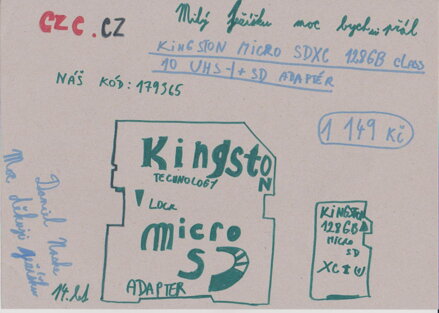 CZC.CZ
Milý Ježíšku moc bych si přál
KINGSTON MICRO SDXC 128GB CLASS
10 UHS-I + SD ADAPTÉR
NÁŠ KÓD: 179365
1 149 Kč
Kingston
TECHNOLOGY
LOCK
micro
SD
ADAPTER
KINGSTON
128GB
MICRO
SD
XC I
Daniel
Moc děkuji Ježíšku
14. let